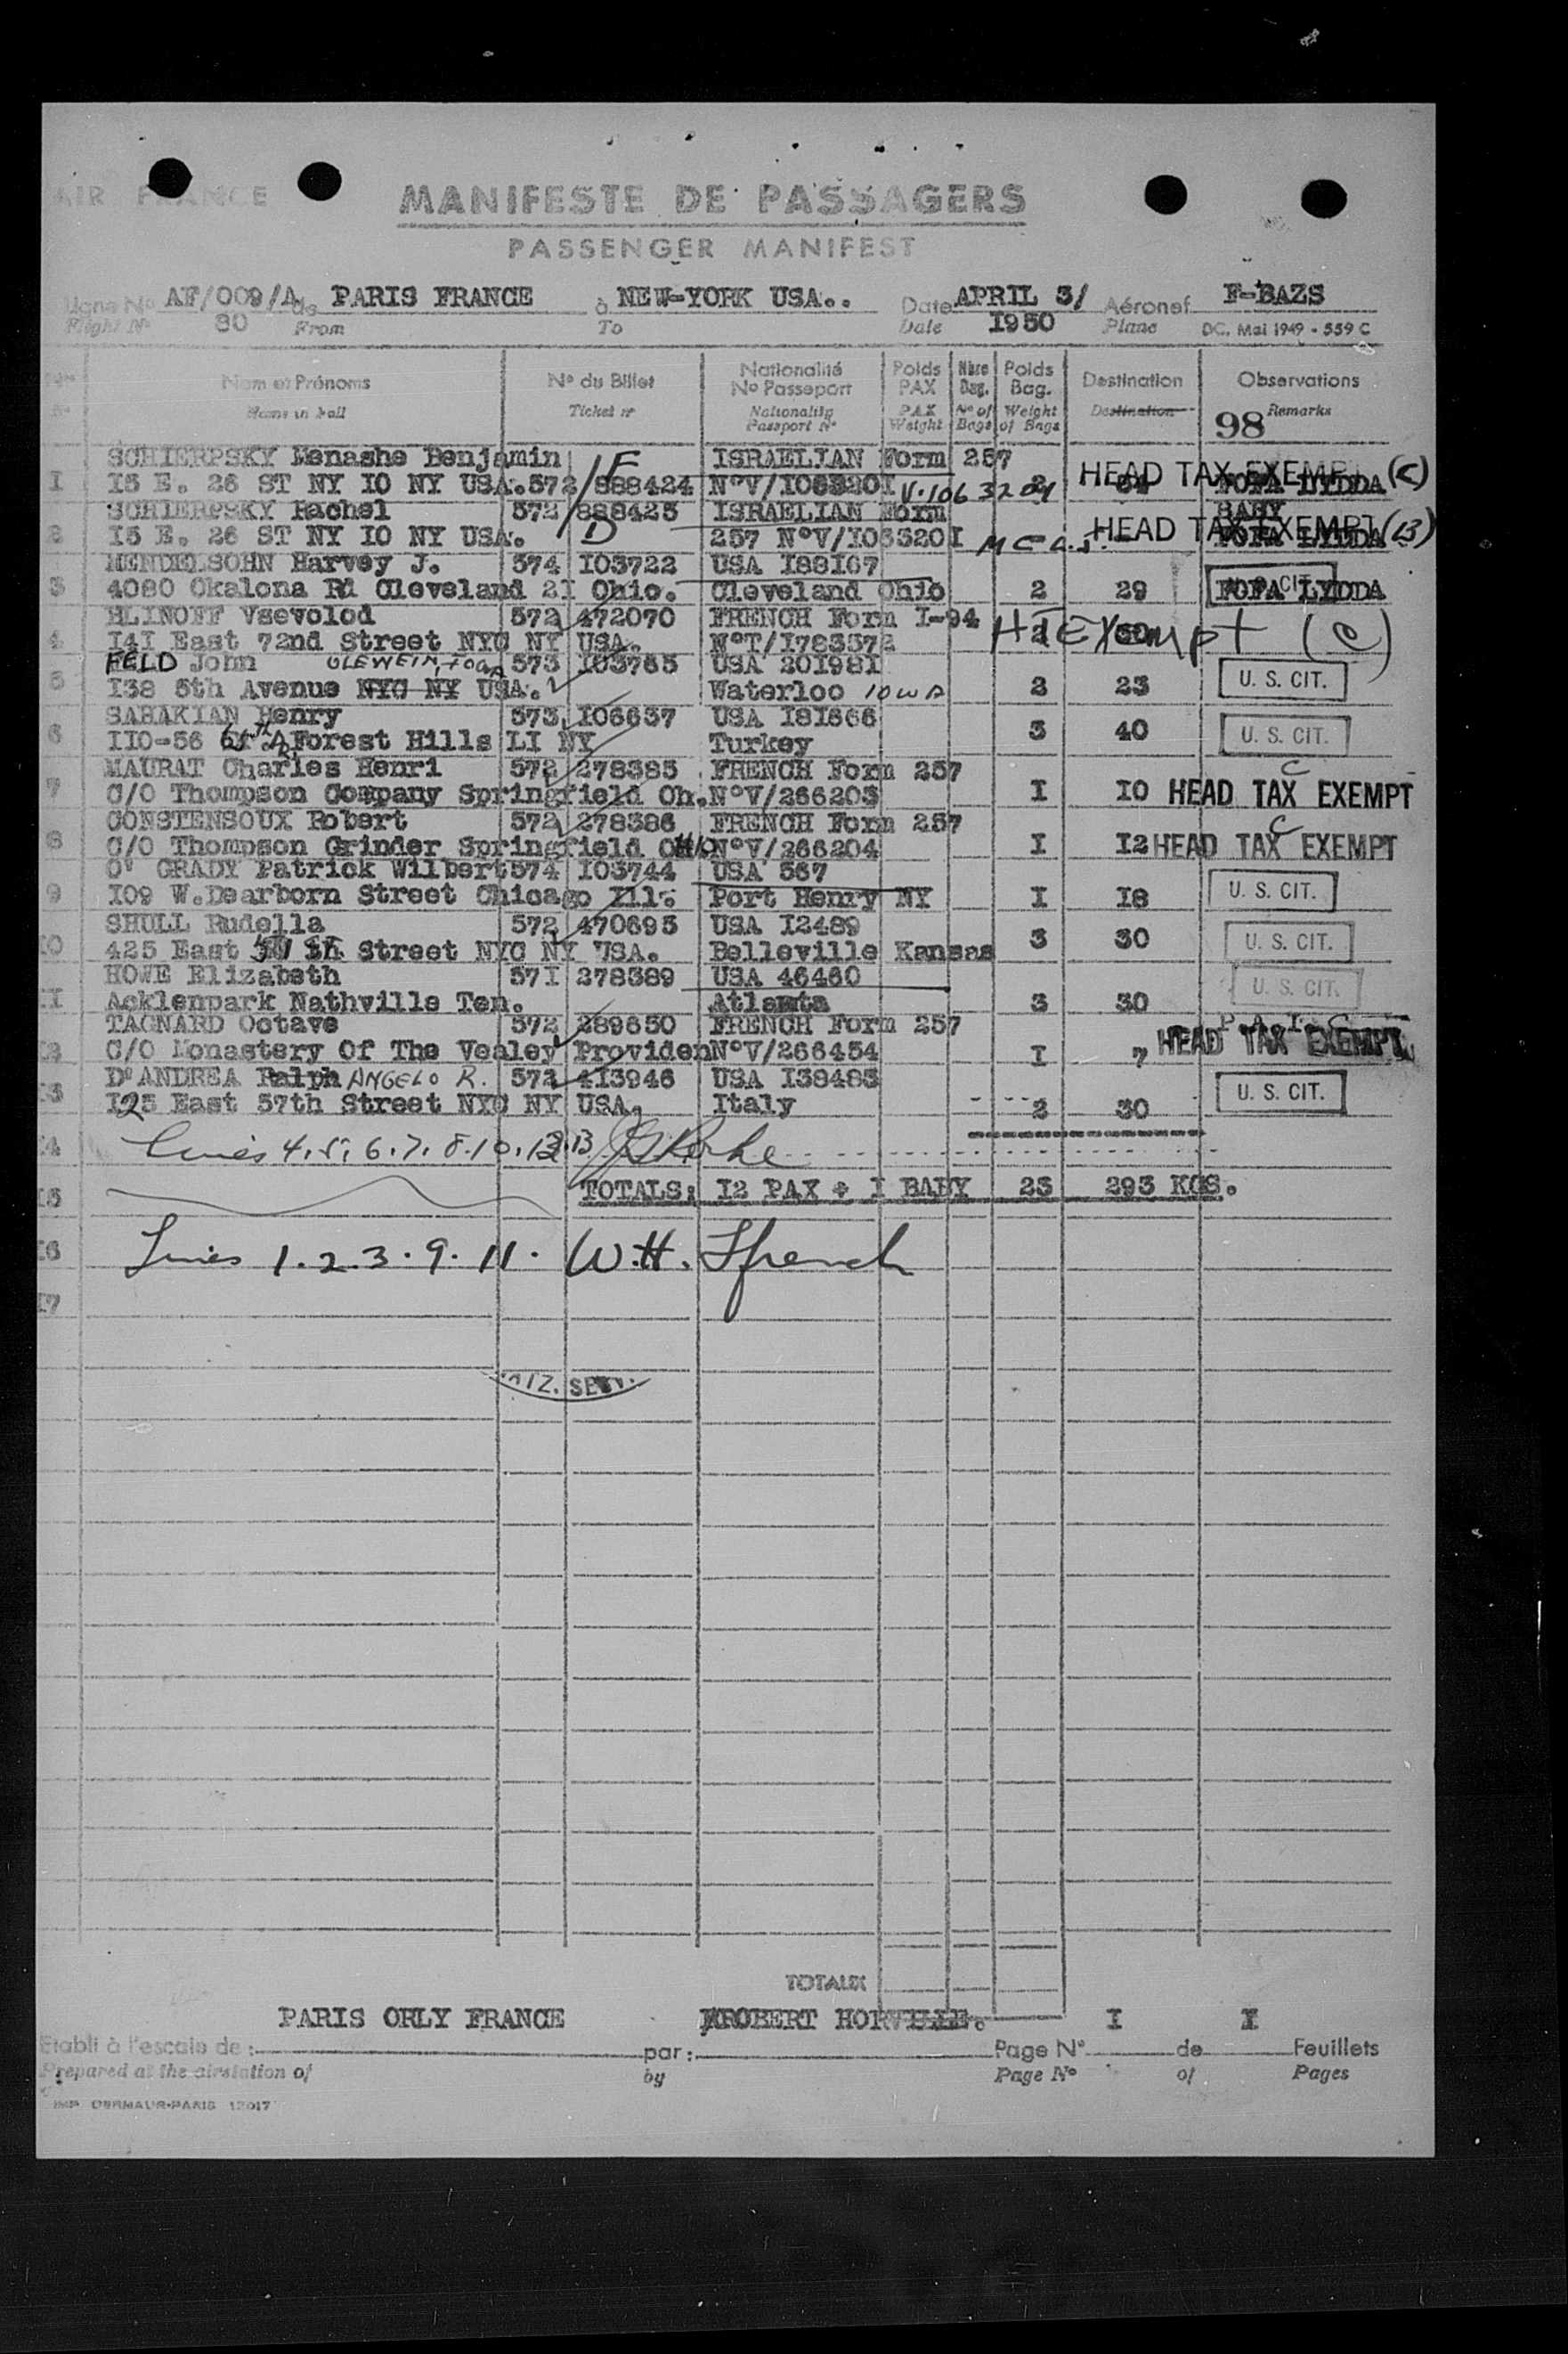 AIR FRANCE
MANIFESTE DE PASSAGERS
PASSENGER MANIFEST
Ligne No AF/009/A de PARIS FRANCE à NEW-YORK USA.. Date APRIL 3/ Aéronef F-BAZS
Flight No 30 From To Date 1950 Plane DC. Mai 1949 - 559 C
Nom et Prénoms No du Billet Nationalité No Passeport Poids PAX Nbre Bag. Poids Bag. Destination Observations
Name in full Ticket nr Nationality Passport No PAX Weight No of Bags Weight of Bags Destination Remarks
98
SCHIERPSKY Menashe Benjamin F ISRAELIAN Form 257
I I5 E. 26 ST NY IO NY USA. 572/888424 N°V/I063201 V.1063201 2 HEAD TAX EXEMPT (C) FOFA LYDDA
SCHIERPSKY Rachel 572/888425 ISRAELIAN Form BABY
2 I5 E. 26 ST NY IO NY USA. D 257 N°V/I063201 HEAD TAX EXEMPT (B) FOFA LYDDA
MENDELSOHN Harvey J. 574 I03722 USA I88I67
3 4080 Okalona Rd Cleveland 2I Ohio. Cleveland Ohio 2 29 FOFA LYDDA
BLINOFF Vsevolod 572 472070 FRENCH Form I-94
4 I4I East 72nd Street NYC NY USA. N°T/I783372 HT Exempt (C)
FELD John OLEWEIN, IOWA 573 I03765 USA 20I98I
5 I38 5th Avenue NYC NY USA. Waterloo IOWA 2 23 U. S. CIT.
SAHAKIAN Henry 573 I06637 USA I8I666
6 II0-56 Forest Hills LI NY Turkey 3 40 U. S. CIT.
MAURAT Charles Henri 572 278385 FRENCH Form 257 C
7 C/O Thompson Company Springfield Oh. N°V/266203 I IO HEAD TAX EXEMPT
CONSTENSOUX Robert 572 278386 FRENCH Form 257 C
8 C/O Thompson Grinder Springfield OHIO N°V/266204 I I2 HEAD TAX EXEMPT
O' GRADY Patrick Wilbert 574 I03744 USA 567
9 I09 W.Dearborn Street Chicago Ill. Port Henry NY I I8 U. S. CIT.
SHULL Rudella 572 470693 USA I2489
IO 425 East Street NYC NY USA. Belleville Kansas 3 30 U. S. CIT.
HOWE Elizabeth 57I 278389 USA 46460
II Acklenpark Nathville Ten. Atlanta 3 30 U. S. CIT.
TAGNARD Octave 572 289650 FRENCH Form 257
I2 C/O Monastery Of The Vealey Providen N°V/266454 I 7 HEAD TAX EXEMPT
D'ANDREA Ralph ANGELO R. 572 413946 USA I38483
I3 I25 East 57th Street NYC NY USA. Italy 2 30 U. S. CIT.
I4 Lines 4.5.6.7.8.10.12.13
I5 TOTALS: I2 PAX + I BABY 23 293 KGS.
I6 Lines 1.2.3.9.11. W.H.
I7
TOTAUX
PARIS ORLY FRANCE ROBERT HORVILLE. I I
Etabli à l'escale de : par : Page N° de Feuillets
Prepared at the airstation of by Page No of Pages
IMP DERMAUR-PARIS 12017